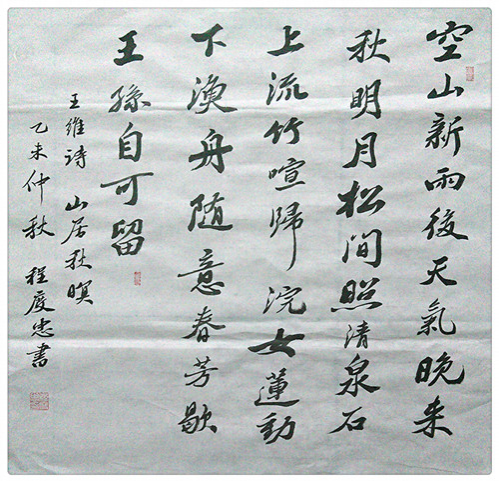 空山新雨後天氣晚来
秋明月松間照清泉石
上流竹喧歸浣女蓮動
下漁舟随意春芳歇
王孫自可留
王維诗 山居秋暝
乙未仲秋 程度忠書